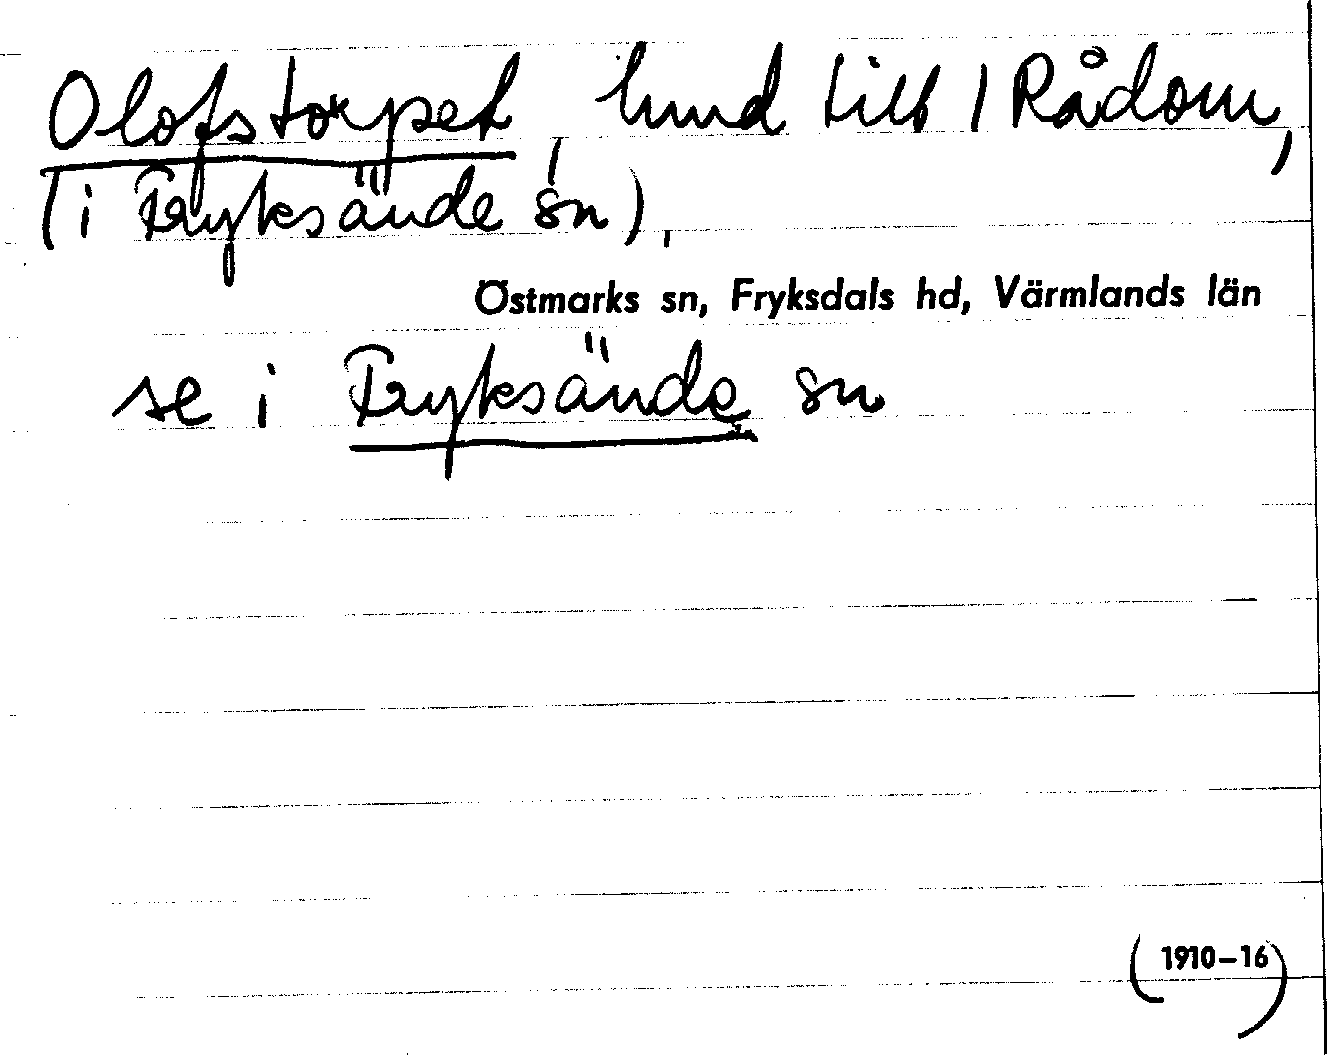 Olofstorpet, lund till 1 Rådom,
(i Fryksände sn),
Östmarks sn, Fryksdals hd, Värmlands län
se i Fryksände sn
(1910–16)